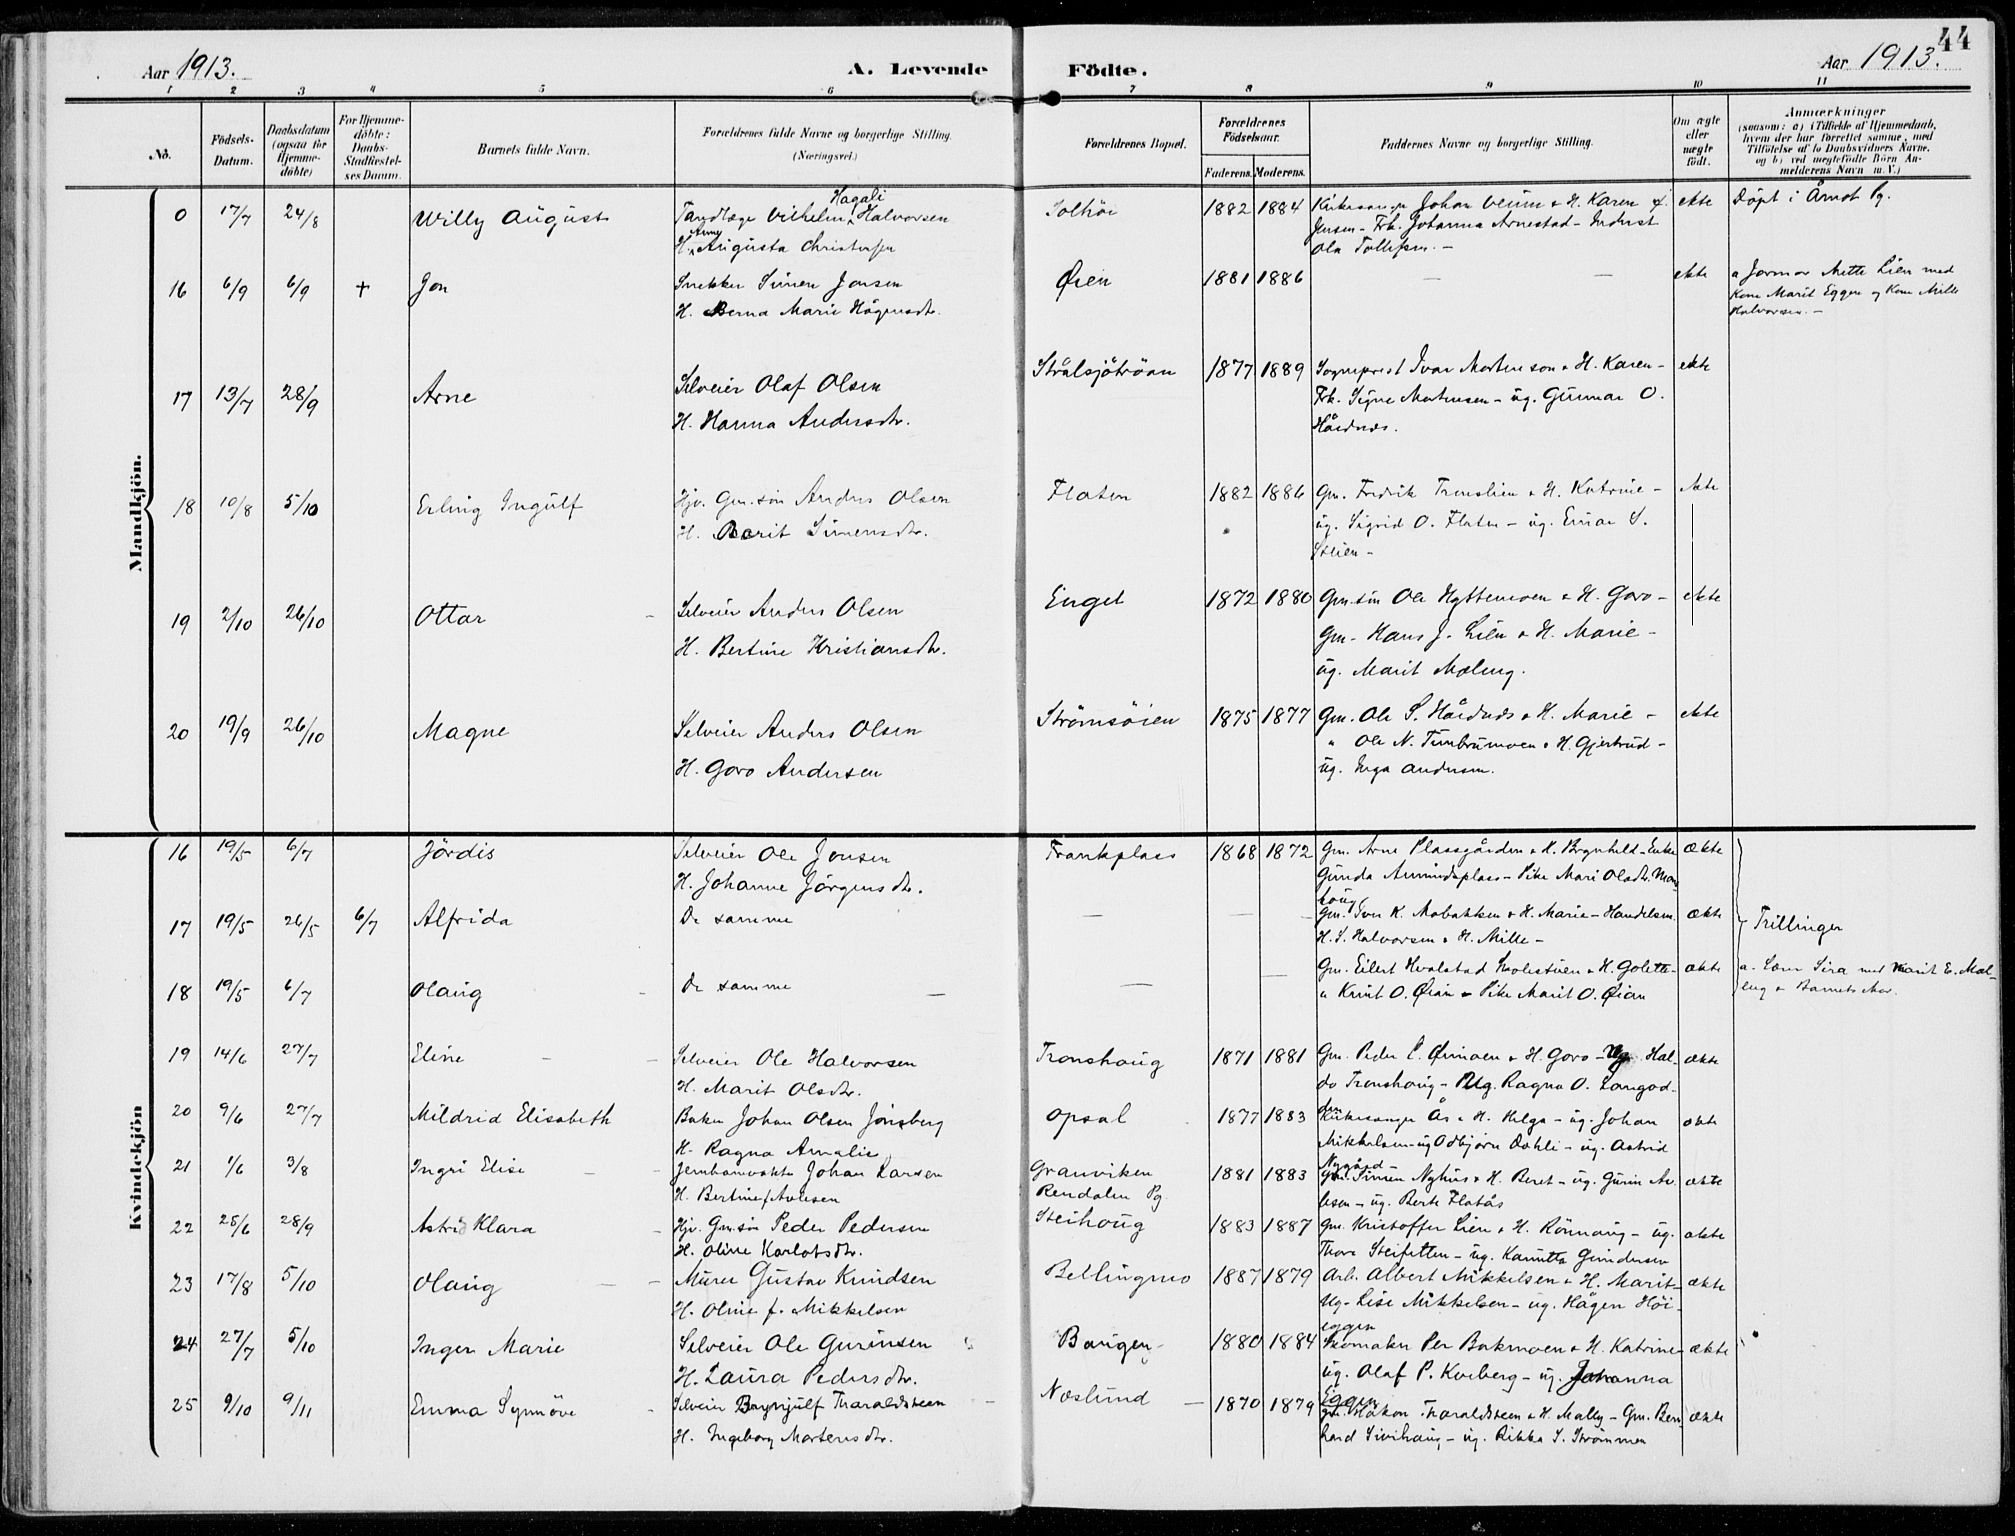 44
Aar 1913.
A. Levende
Födte.
Aar 1913.
1 2 3 4 5 6 7 8 9 10 11
No.
Födsels-Datum.
Daabsdatum (ogsaa for Hjemme-döbte)
For Hjemme-döbte: Daabs-Stadfæstel-ses Datum.
Barnets fulde Navn.
Forældrenes fulde Navne og borgerlige Stilling.
(Næringsvei.)
Forældrenes Bopæl.
Forældrenes Fødselsaar.
Faderens. Moderens.
Faddernes Navne og borgerlige Stilling.
Om ægte eller uægte födt.
Anmærkninger
(saasom: a) i Tilfælde af Hjemmedaab,
hvem der har forrettet samme, med
Tilföielse af to Daabsvidners Navne,
og b) ved uægtefödte Börn An-
melderens Navn m. V.)
Mandkjön.
0 17/7 24/8 Willy August
Tandlæge Vilhelm Hagali Halvorsen
H. Anny Augusta Christensen
Solhöi 1882 1884
Kirkesanger Johan Veum & H. Karen f.
Jensen - Frk. Johanna Arnestad -
Ola Tollefsen. -
ekte
Döpt i Åmot Pg.
16 6/9 6/9 + Jon
Snekker Simen Jonsen
H. Berna Marie Högensdtr.
Öien 1881 1886 — —
ekte
a Jormor Mette Lien med
Kone Marit Eggen og Kone Mille
Halvorsen. -
17 13/7 28/9 Arne
Selveier Olaf Olsen
H. Hanna Andersdtr.
Strålsjötröan 1877 1889
Sogneprest Ivar Mortenson & H. Karen -
Frk. Signe Mortensen - ug. Gunnar O.
Hårdnes.
ekte
18 10/8 5/10 Erling Ingulf
Hjv. Gm.sön Anders Olsen
H. Berit Simensdtr.
Floten 1882 1886
Gm. Fredrik Tronslien & H. Katrine -
ug. Sigrid O. Floten - ug. Einar S.
Steien -
ekte
19 2/10 26/10 Ottar
Selveier Anders Olsen
H. Bertine Kristiansdtr.
Enget 1872 1880
Gm.sön Ole Hyttemoen & H. Goro -
Gm. Hans J. Lien & H. Marie -
ug. Marit Mæleng.
ekte
20 19/9 26/10 Magne
Selveier Anders Olsen
H. Goro Andersen
Strömsöien 1875 1877
Gm. Ole S. Hårdnes & H. Marie -
" Ole N. Tumbrumoen & H. Gjertrud -
ug. Inga Andersen.
ekte
Kvindekjön
16 19/5 6/7 Jördis
Selveier Ole Jonsen
H. Johanne Jörgensdtr.
Frankplass 1868 1872
Gm. Arne Plassgården & H. Brynhild - Enke
Gunda Amundsplass - Pike Mari Olsdtr. Mon-
houg.
ækte
17 19/5 26/5 6/7 Alfrida
De samme
— — —
Gm. Iver K. Mobakken & H. Marie - Handelsm.
H. S. Halvorsen & H. Mille -
ækte
Trillinger
18 19/5 6/7 Olaug
De samme
— —
Gm. Eilert Hvalstad & H. Golette -
" Knut O. Öian - Pike Marit O. Öian
ækte
a. Lærer Sira med Marit E. Mæl-
eng & Barnets Mor.
19 14/6 27/7 Eline
Selveier Ole Halvorsen
H. Marit Olsdtr.
Tronshaug 1871 1881
Gm. Peder E. Öimoen & H. Goro - Ug. Hal-
do Tronshaug - Ug. Ragna O. Langod-
den
ækte
20 9/6 27/7 Mildrid Elisabeth
Baker Johan Olsen Jönsberg
H. Ragna Amalie
Opsal 1877 1883
Kirkesanger Ås & H. Helga - ug. Johan
Mikkelsen - ug Odbjörn Dahli - ug. Astrid
Nygård
ækte
21 1/6 3/8 Ingri Elise
Jernbanevokter Johan Larsen
H. Bertine f. Avlesen
Granviken
Rendalen Pg
1881 1883
Gm. Simen Nyhus & H. Beret - ug. Gurin Av-
lesen - ug. Berte Flatås
ækte
22 25/6 28/9 Astrid Klara
Hjv. Gm.sön Peder Pedersen
H. Oline Karlotsdtr.
Steihoug 1883 1887
Gm. Kristoffer Lien & H. Rönnaug - ug.
Thora Steifetten - ug. Kanutta Gundersen
ækte
23 17/8 5/10 Olaug
Murer Gustav Knudsen
H. Oline f. Mikkelsen
Bellingmo 1887 1879
Arb. Albert Mikkelsen & H. Marit -
Ug. Lise Mikkelsen - ug. Hågen Höi-
eggen
ækte
24 27/7 5/10 Inger Marie
Selveier Ole Gurinsen
H. Laura Pedersdtr.
Baugen 1880 1884
Skomaker Per Bakmoen & H. Katrine
ug. Olaf P. Kveberg - ug. Johanna
Eggen
ækte
25 9/10 9/11 Emma Synnöve
Selveier Brynjulf Tharaldsteen
H. Ingeborg Mortensdtr.
Næslund 1870 1879
Gm. Håkon Tharaldsteen & H. Mally - Gm. Bern-
hard Sivihaug - ug. Rikka S. Strömmen
ækte